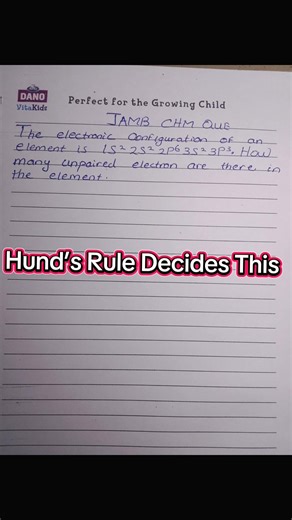 DANO
VitaKids
Perfect for the Growing Child
JAMB CHM QUE
The electronic Configuration of an
element is 1S² 2S² 2P⁶ 3S² 3P³. How
many unpaired electron are there in
the element.
Hund's Rule Decides This